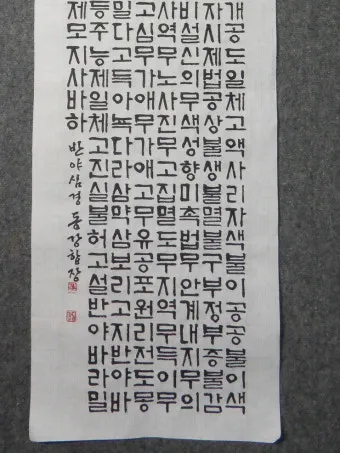 개공도일체고액사리자색불이공공불이색
자시제법공상불생불멸불구부정부증불감
비설신의무색성향미촉법무안계내지무의
사역무노사진무고집멸도무지역무득이무
고심무가애무가애고무유공포원리전도몽
밀다고득아뇩다라삼먁삼보리고지반야바
등주능제일체고진실불허고설반야바라밀
제모지사바하 반야심경 동강합장